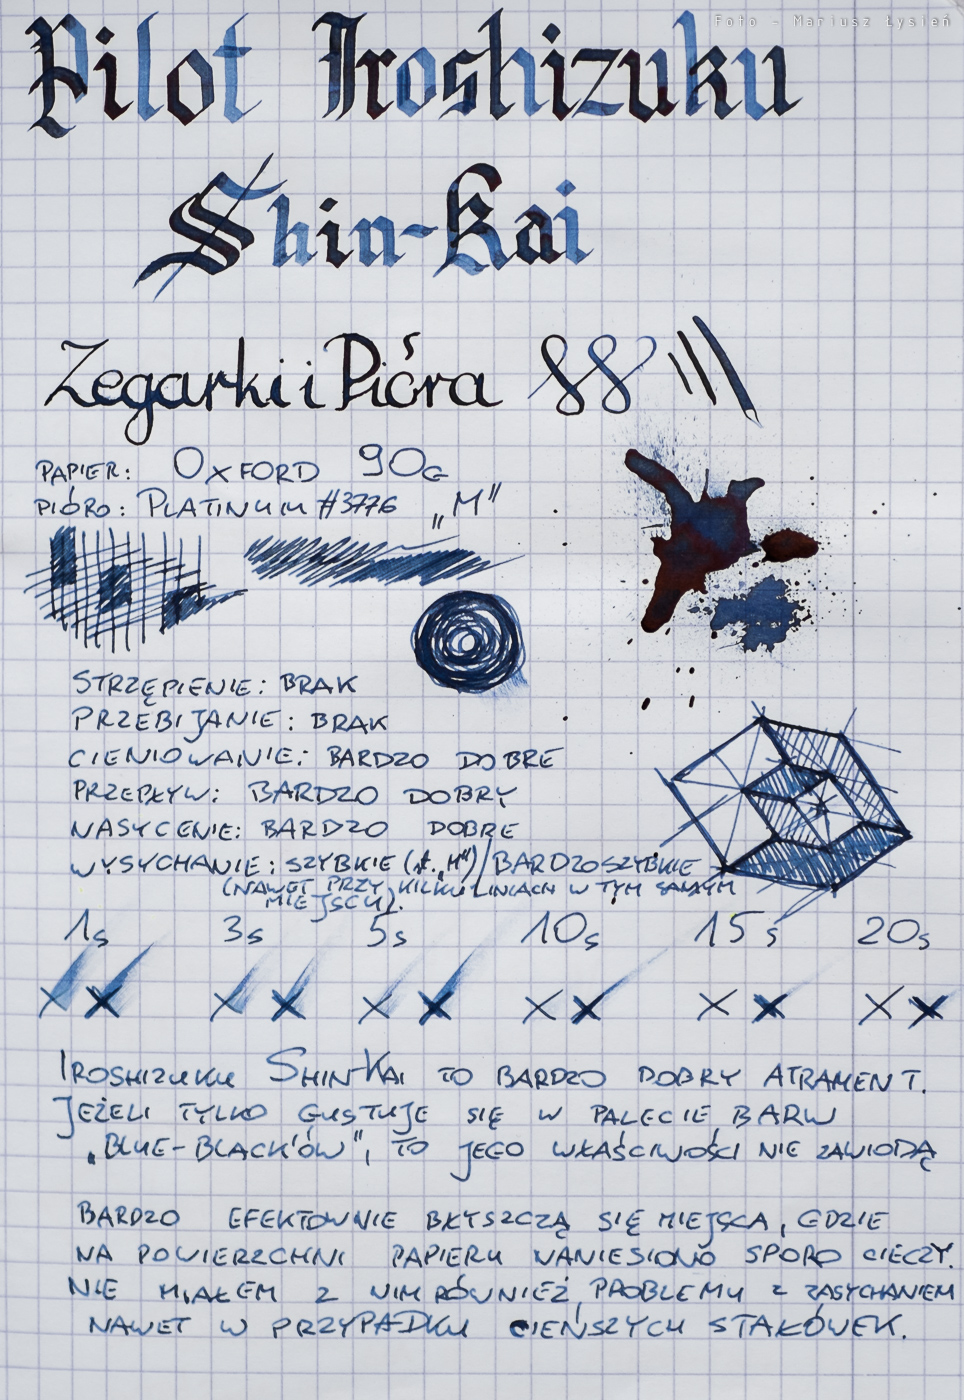 Foto - Mariusz Łysień
Pilot Iroshizuku
Shin-Kai
Zegarki i Pióra
PAPIER: OXFORD 90G
PIÓRO: PLATINUM #3776 „M”
STRZĘPIENIE: BRAK
PRZEBIJANIE: BRAK
CIENIOWANIE: BARDZO DOBRE
PRZEPŁYW: BARDZO DOBRY
NASYCENIE: BARDZO DOBRE
WYSYCHANIE: SZYBKIE („M”)/BARDZO SZYBKIE
(NAWET PRZY KILKU LINIACH W TYM SAMYM
MIEJSCU).
1s 3s 5s 10s 15s 20s
IROSHIZUKU SHIN-KAI TO BARDZO DOBRY ATRAMENT.
JEŻELI TYLKO GUSTUJE SIĘ W PALECIE BARW
„BLUE-BLACK'ÓW”, TO JEGO WŁAŚCIWOŚCI NIE ZAWIODĄ
BARDZO EFEKTOWNIE BŁYSZCZĄ SIĘ MIEJSCA, GDZIE
NA POWIERZCHNI PAPIERU NANIESIONO SPORO CIECZY.
NIE MIAŁEM Z NIM RÓWNIEŻ PROBLEMU Z ZASYCHANIEM
NAWET W PRZYPADKU CIEŃSZYCH STALÓWEK.